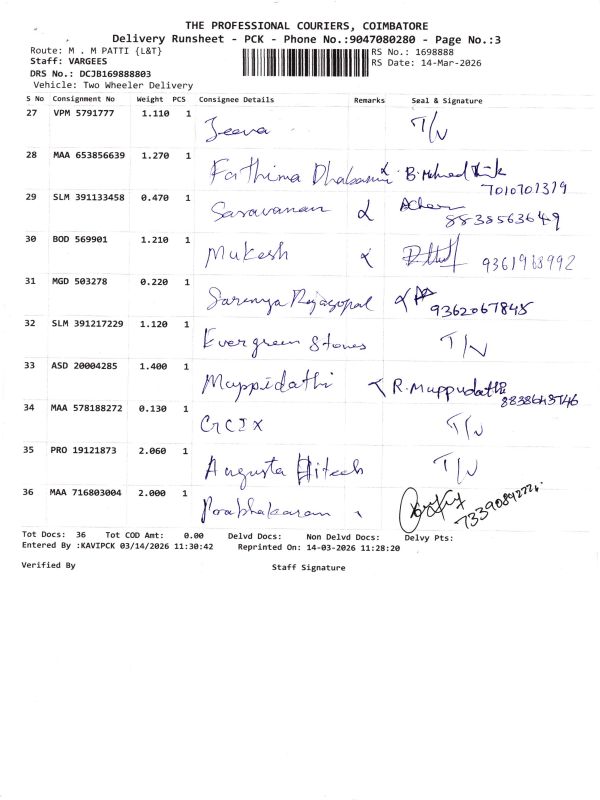 THE PROFESSIONAL COURIERS, COIMBATORE
Delivery Runsheet - PCK - Phone No.:9047080280 - Page No.:3
Route: M . M PATTI {L&T} RS No.: 1698888
Staff: VARGEES RS Date: 14-Mar-2026
DRS No.: DCJB169888803
Vehicle: Two Wheeler Delivery
S No Consignment No Weight PCS Consignee Details Remarks Seal & Signature
27 VPM 5791777 1.110 1 Jeeva T/V
28 MAA 653856639 1.270 1 Fathima
7010701319
29 SLM 391133458 0.470 1 Saravanan
8838563649
30 BOD 569901 1.210 1 Mukesh 9361968992
31 MGD 503278 0.220 1 Saranya Rajagopal
9362067845
32 SLM 391217229 1.120 1 Evergreen Stones T/V
33 ASD 20004285 1.400 1 Muppidathi R. Muppudathi
34 MAA 578188272 0.130 1 T/V
35 PRO 19121873 2.060 1 Augusta Hitech T/V
36 MAA 716803004 2.000 1 Prabhakaran
Tot Docs: 36 Tot COD Amt: 0.00 Delvd Docs: Non Delvd Docs: Delvy Pts:
Entered By :KAVIPCK 03/14/2026 11:30:42 Reprinted On: 14-03-2026 11:28:20
Verified By Staff Signature